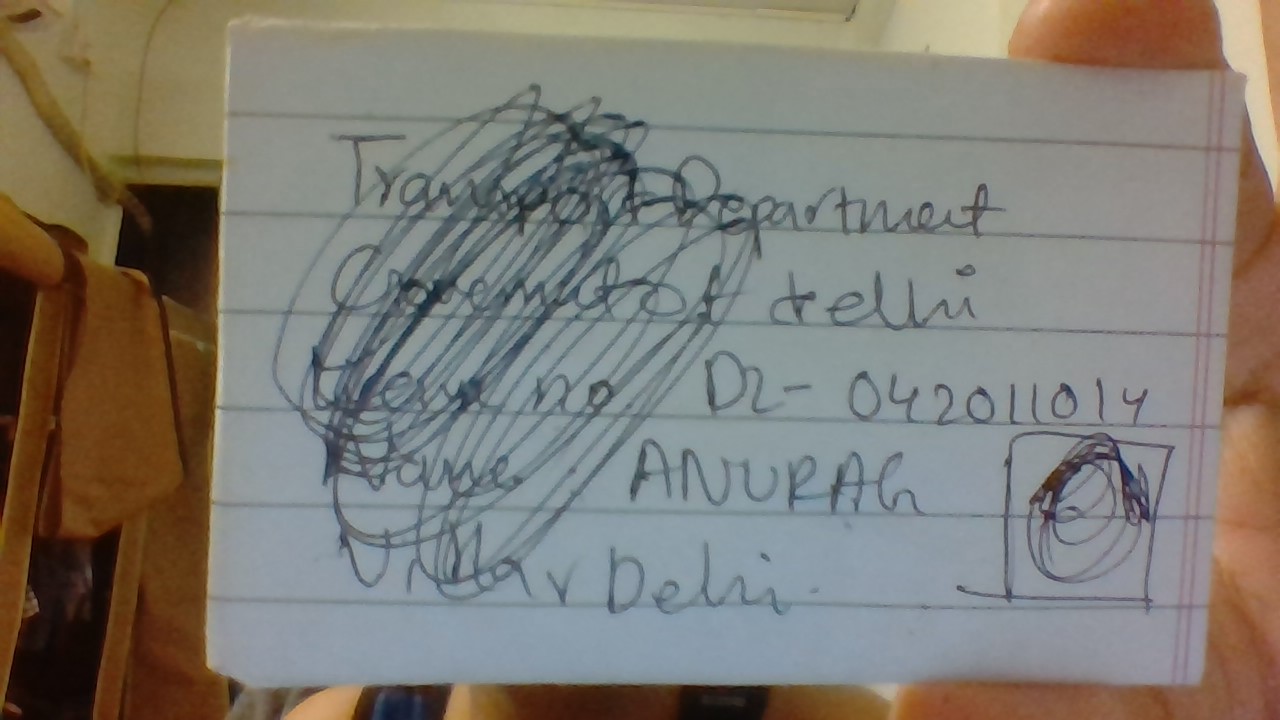 Transport Department
Govenmt of delhi
no DL-042011014
Name ANURAG
Uttar Delhi.